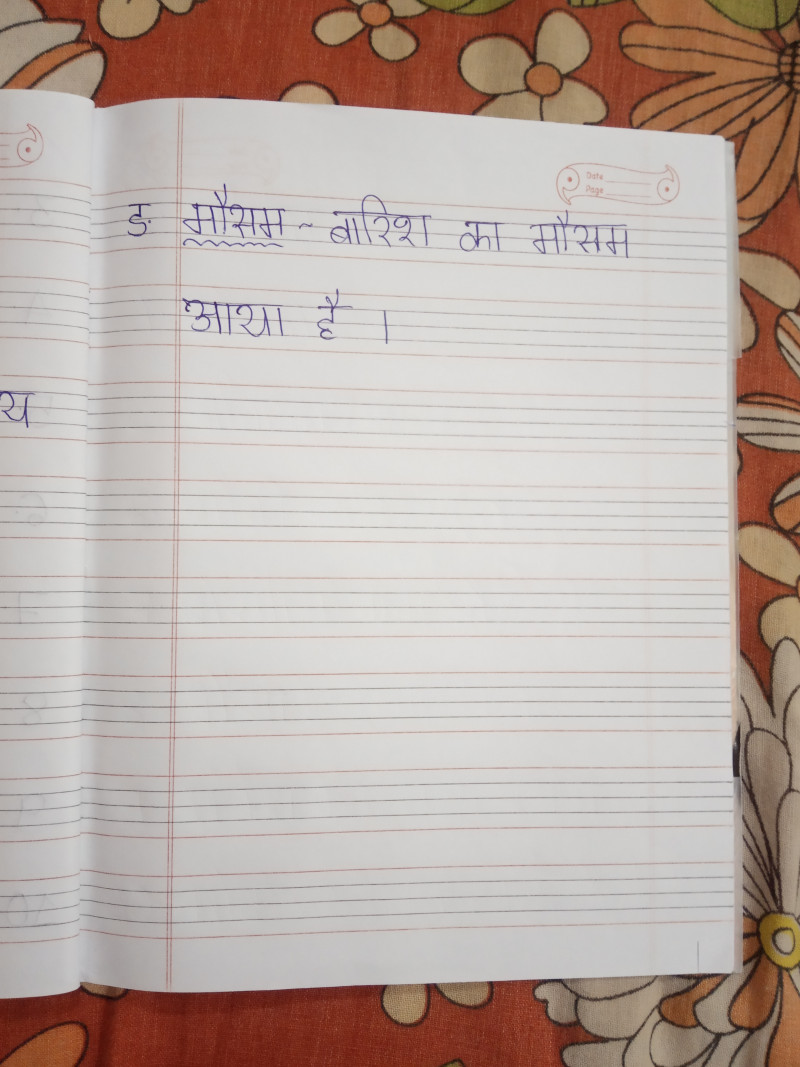 Date
Page
ङ. मौसम ~ बारिश का मौसम
आया है ।
य